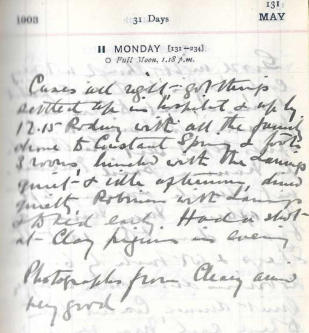 1903
31 Days
131
MAY
11 MONDAY [131-234]
○ Full Moon, 1.18 p.m.
Cases all right - got things
settled up in hospital & up by
12.15 Rodney with all the family
drove to Constant Spring & took
3 rooms, lunched with the
quiet & idle afternoon, dined
quietly with
& to bed early. Had a shot
at Clay pigeons in evening
Photographs from Cleary
very good